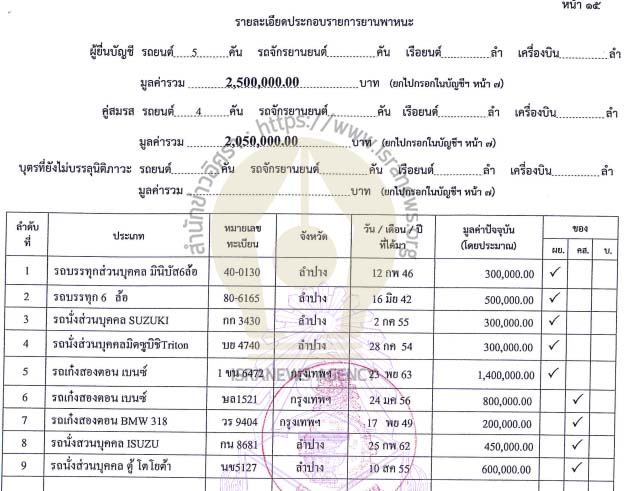 หน้า ๑๕
รายละเอียดประกอบรายการยานพาหนะ
ผู้ยื่นบัญชี รถยนต์ 5 คัน รถจักรยานยนต์ คัน เรือยนต์ ลำ เครื่องบิน ลำ
มูลค่ารวม 2,500,000.00 บาท (ยกไปกรอกในบัญชีฯ หน้า ๗)
คู่สมรส รถยนต์ 4 คัน รถจักรยานยนต์ คัน เรือยนต์ ลำ เครื่องบิน ลำ
มูลค่ารวม 2,050,000.00 บาท (ยกไปกรอกในบัญชีฯ หน้า ๗)
บุตรที่ยังไม่บรรลุนิติภาวะ รถยนต์ คัน รถจักรยานยนต์ คัน เรือยนต์ ลำ เครื่องบิน ลำ
มูลค่ารวม บาท (ยกไปกรอกในบัญชีฯ หน้า ๗)
สำนักข่าวอิศรา https://www.isranews.org
ลำดับที่ ประเภท หมายเลขทะเบียน จังหวัด วัน / เดือน / ปี ที่ได้มา มูลค่าปัจจุบัน (โดยประมาณ) ของ
ผย. คส. บ.
1 รถบรรทุกส่วนบุคคล มินิบัส6ล้อ 40-0130 ลำปาง 12 กพ 46 300,000.00 ✓
2 รถบรรทุก 6 ล้อ 80-6165 ลำปาง 16 มิย 42 500,000.00 ✓
3 รถนั่งส่วนบุคคล SUZUKI กก 3430 ลำปาง 2 กค 55 300,000.00 ✓
4 รถนั่งส่วนบุคคลมิตซูบิชิTriton บย 4740 ลำปาง 28 กค 54 300,000.00 ✓
5 รถเก๋งสองตอน เบนซ์ 1 ขม 6472 กรุงเทพฯ 23 พย 63 1,400,000.00 ✓
ISRANEWS AGENCY
6 รถเก๋งสองตอน เบนซ์ ษล1521 กรุงเทพฯ 24 มค 56 800,000.00 ✓
7 รถเก๋งสองตอน BMW 318 วร 9404 กรุงเทพฯ 17 พย 49 200,000.00 ✓
8 รถนั่งสวนบุคคล ISUZU กน 8681 ลำปาง 25 กพ 62 450,000.00 ✓
9 รถนั่งส่วนบุคคล ตู้ โตโยต้า นข5127 ลำปาง 10 สค 55 600,000.00 ✓